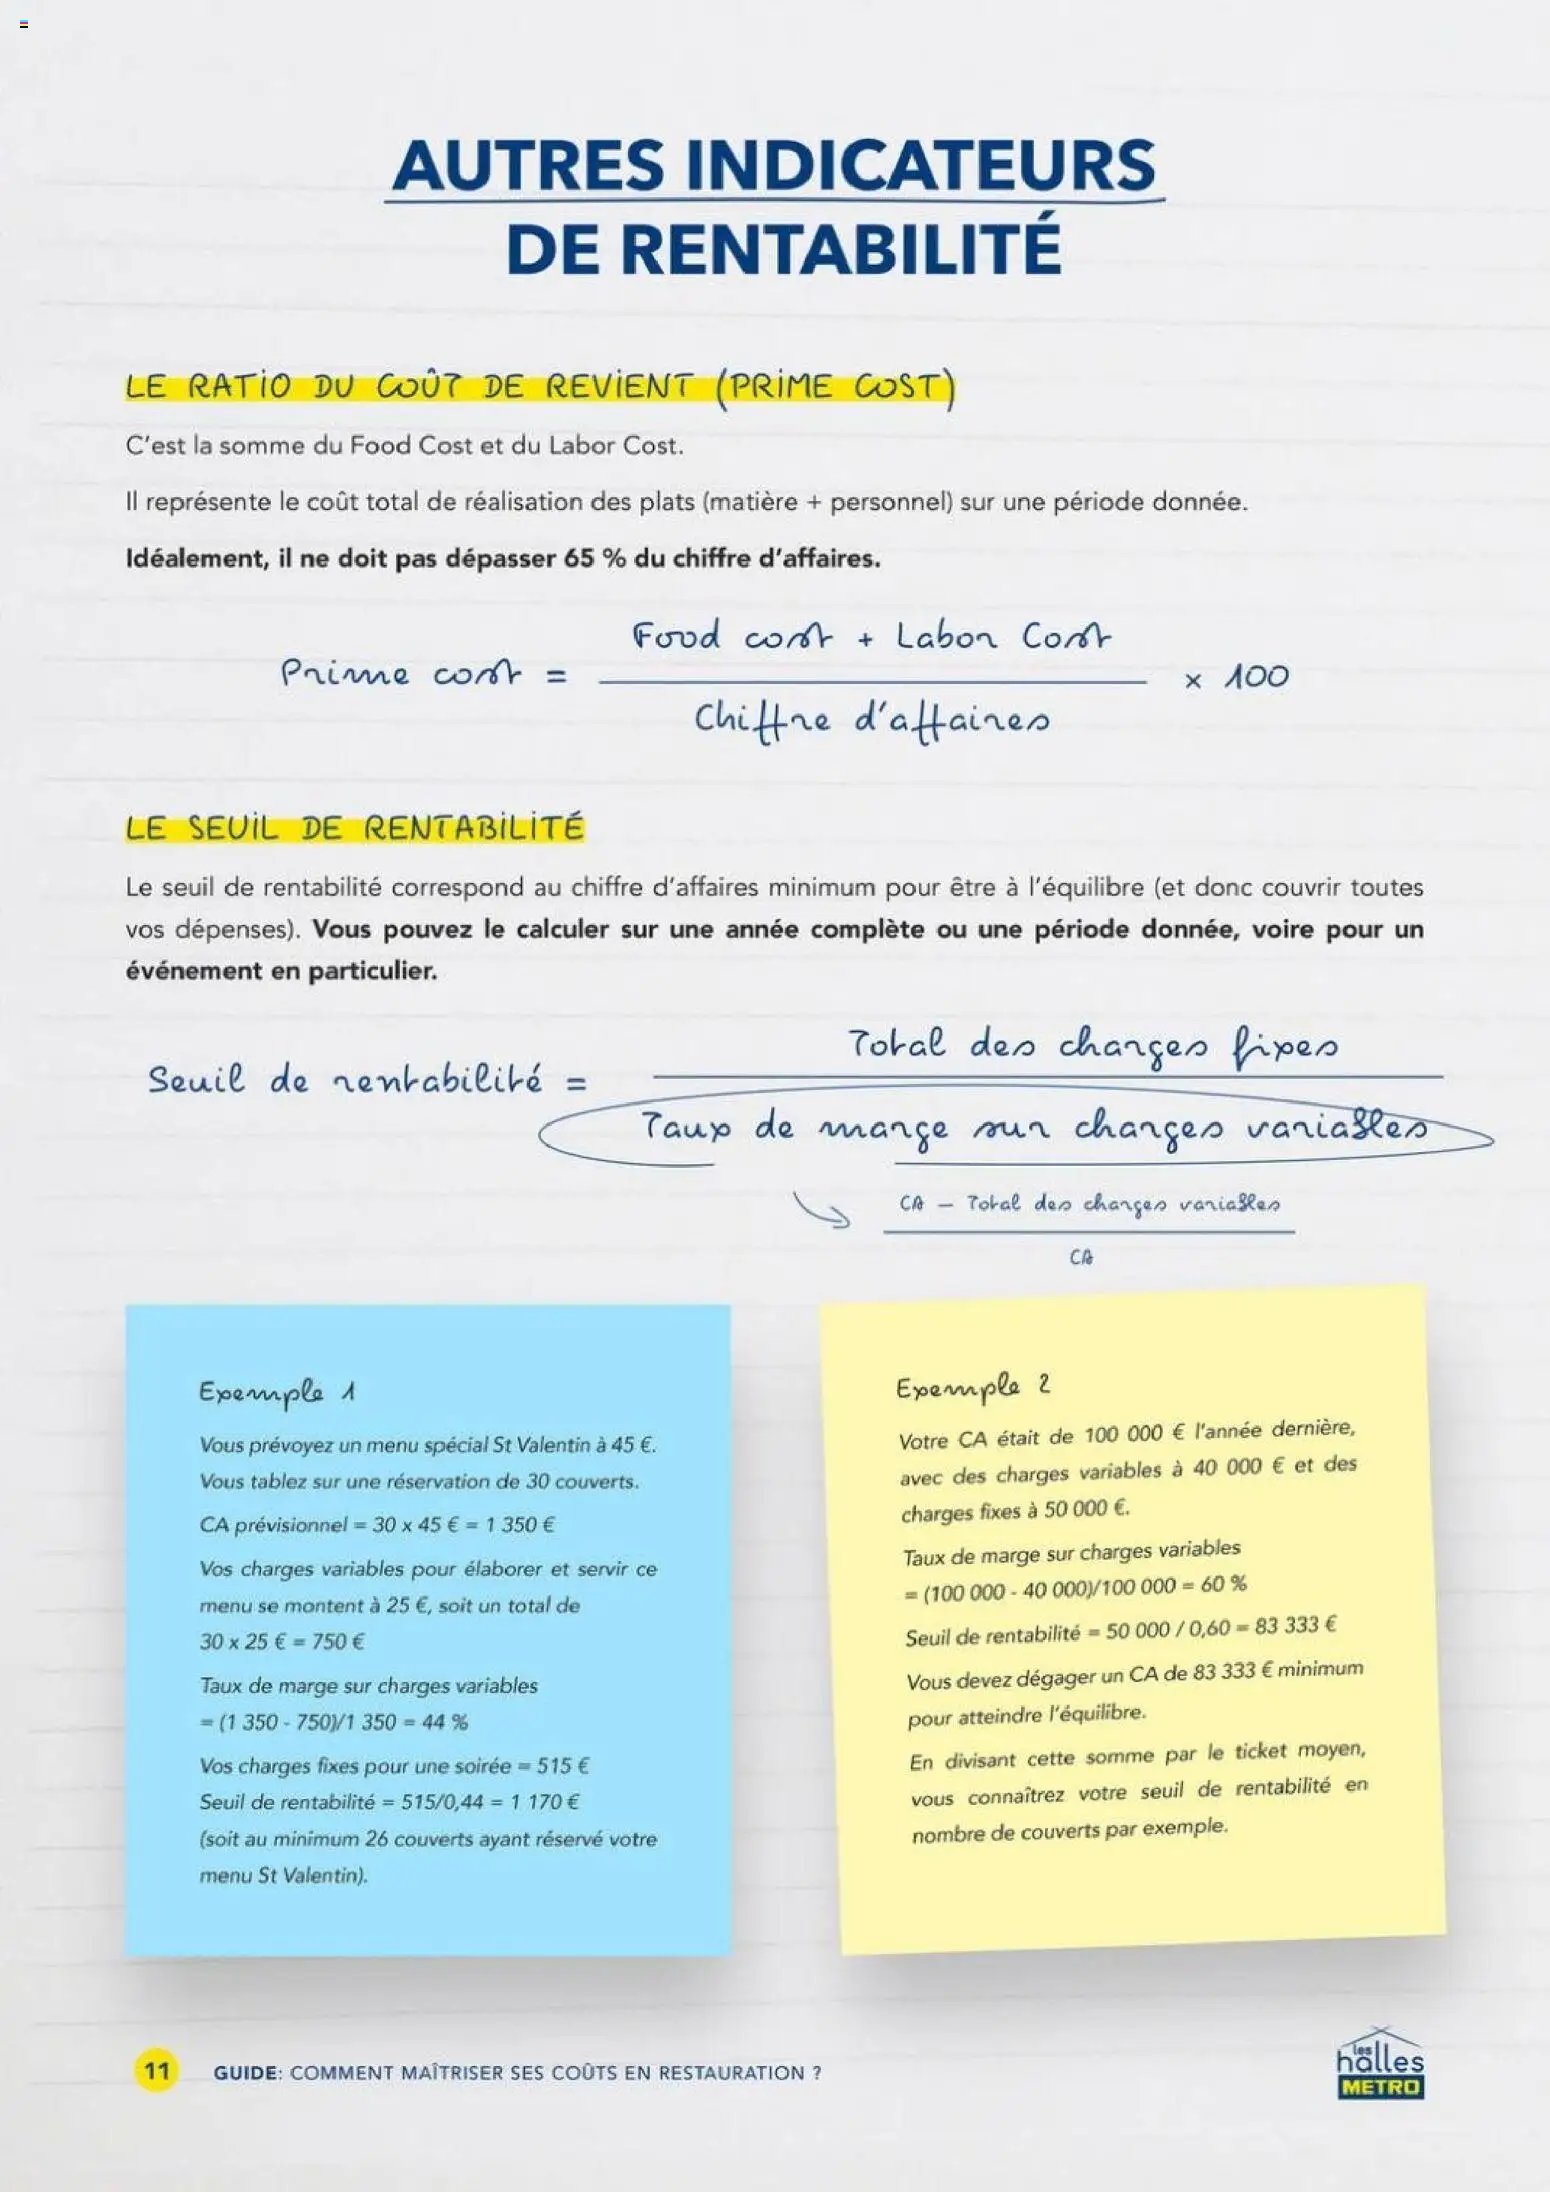 AUTRES INDICATEURS
DE RENTABILITÉ
LE RATIO DU COÛT DE REVIENT (PRIME COST)
C'est la somme du Food Cost et du Labor Cost.
Il représente le coût total de réalisation des plats (matière + personnel) sur une période donnée.
Idéalement, il ne doit pas dépasser 65 % du chiffre d'affaires.
Food cost + Labor Cost
Prime cost = × 100
Chiffre d'affaires
LE SEUIL DE RENTABILITÉ
Le seuil de rentabilité correspond au chiffre d'affaires minimum pour être à l'équilibre (et donc couvrir toutes
vos dépenses). Vous pouvez le calculer sur une année complète ou une période donnée, voire pour un
événement en particulier.
Total des charges fixes
Seuil de rentabilité =
Taux de marge sur charges variables
CA – Total des charges variables
CA
Exemple 1
Vous prévoyez un menu spécial St Valentin à 45 €.
Vous tablez sur une réservation de 30 couverts.
CA prévisionnel = 30 x 45 € = 1 350 €
Vos charges variables pour élaborer et servir ce
menu se montent à 25 €, soit un total de
30 x 25 € = 750 €
Taux de marge sur charges variables
= (1 350 - 750)/1 350 = 44 %
Vos charges fixes pour une soirée = 515 €
Seuil de rentabilité = 515/0,44 = 1 170 €
(soit au minimum 26 couverts ayant réservé votre
menu St Valentin).
Exemple 2
Votre CA était de 100 000 € l'année dernière,
avec des charges variables à 40 000 € et des
charges fixes à 50 000 €.
Taux de marge sur charges variables
= (100 000 - 40 000)/100 000 = 60 %
Seuil de rentabilité = 50 000 / 0,60 = 83 333 €
Vous devez dégager un CA de 83 333 € minimum
pour atteindre l'équilibre.
En divisant cette somme par le ticket moyen,
vous connaîtrez votre seuil de rentabilité en
nombre de couverts par exemple.
11
GUIDE: COMMENT MAÎTRISER SES COÛTS EN RESTAURATION ?
les
halles
METRO